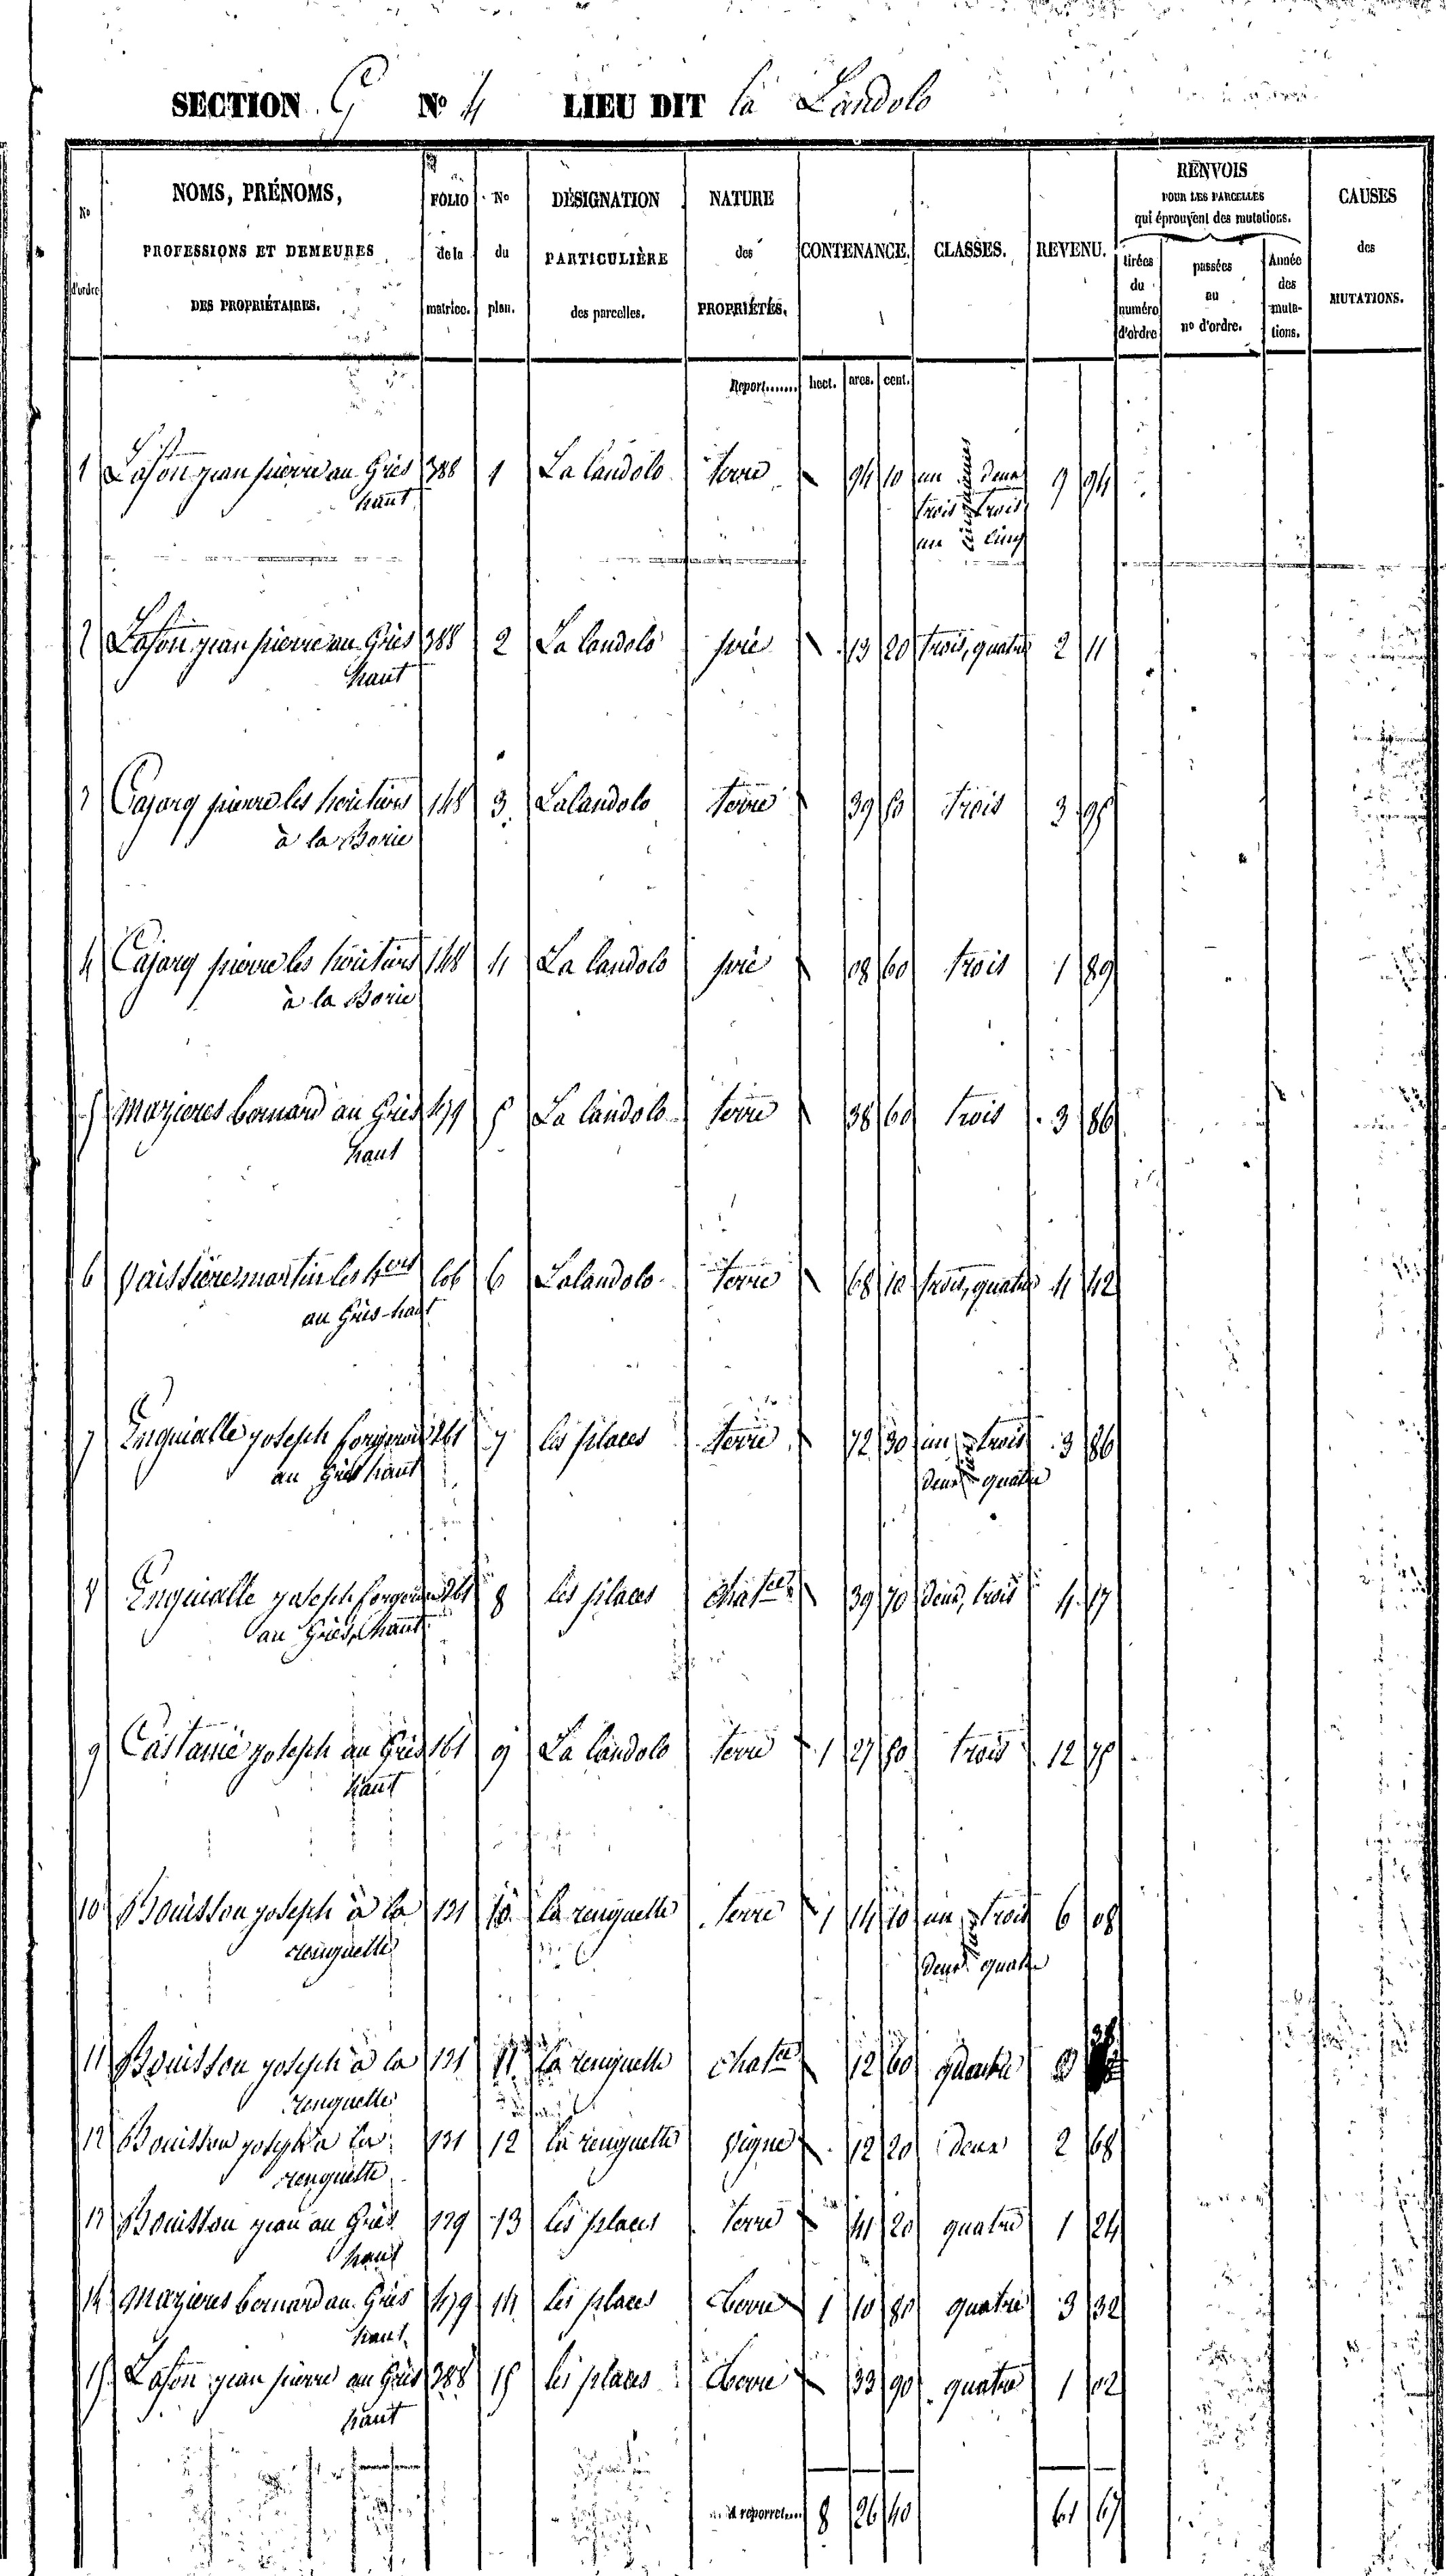 SECTION G No 4 LIEU DIT la Landolo
No d'ordre
NOMS, PRÉNOMS,
PROFESSIONS ET DEMEURES
DES PROPRIÉTAIRES.
FOLIO de la matrice.
No du plan.
DÉSIGNATION
PARTICULIÈRE
des parcelles.
NATURE
des
PROPRIÉTÉS.
CONTENANCE.
CLASSES.
REVENU.
RENVOIS
POUR LES PARCELLES
qui éprouvent des mutations.
tirées du numéro d'ordre
passées au no d'ordre.
Année des mutations.
CAUSES
des
MUTATIONS.
Report....... hect. ares. cent.
1 Lafon jean pierre au Griès 388 1 La landolo terre 94 10 un deux 9 94
haut trois trois
un cinq
2 Lafon jean pierre au Griès 388 2 La landolo pré 13 20 trois, quatre 2 11
haut
3 Cajarg pierre les héritiers 148 3 Lalandolo terre 39 50 trois 3 95
à la Borie
4 Cajarg pierre les héritiers 148 4 La landolo pré 08 60 trois 1 89
à la Borie
5 Mazieres bernard au Griès 479 5 La landolo terre 38 60 trois 3 86
haut
6 Vaissière martin les hers 6 Lalandolo terre 68 10 trois, quatre 4 42
au Griès-haut
7 Enquialle joseph forgeron 261 7 les places terre 72 30 un trois 3 86
au Griès haut deux quatre
8 Enquialle joseph forgeron 261 8 les places chatre 39 70 deux, trois 4 17
au Griès haut
9 Castanié joseph au Griès 161 9 La landolo terre 1 27 50 trois 12 75
haut
10 Bouisson joseph à la 131 10 la renquette terre 1 14 10 un trois 6 08
renquette deux quatre
11 Bouisson joseph à la 131 11 la renquette chatre 12 60 quatre
renquette
12 Bouisson joseph à la 131 12 la renquette vigne 12 20 deux 2 68
renquette
13 Bouisson jean au Griès 129 13 les places terre 41 20 quatre 1 24
haut
14 Mazieres bernard au Griès 479 14 les places terre 1 10 80 quatre 3 32
haut
15 Lafon jean pierre au Griès 388 15 les places terre 33 90 quatre 1 02
haut
A reporter.... 8 26 40 61 67